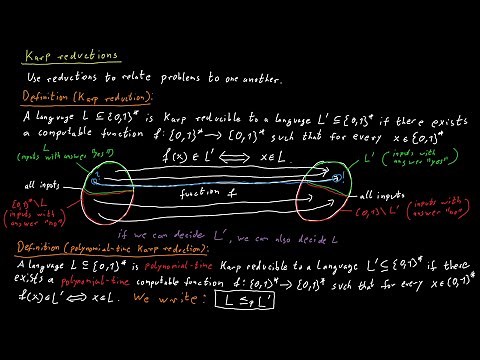 Karp reductions
Use reductions to relate problems to one another.
Definition (Karp reduction):
A language L ⊆ {0,1}* is Karp reducible to a language L' ⊆ {0,1}* if there exists
a computable function f: {0,1}* → {0,1}* such that for every x ∈ {0,1}*
f(x) ∈ L' ⟺ x ∈ L.
L
(inputs with answer "yes")
L' (inputs with answer "yes")
all inputs
function f
all inputs
{0,1}*\L
(inputs with
answer "no")
{0,1}*\L' (inputs with
answer "no")
if we can decide L', we can also decide L
Definition (polynomial-time Karp reduction):
A language L ⊆ {0,1}* is polynomial-time Karp reducible to a language L' ⊆ {0,1}* if there
exists a polynomial-time computable function f: {0,1}* → {0,1}* such that for every x ∈ {0,1}*
f(x) ∈ L' ⟺ x ∈ L. We write: L ≤p L'